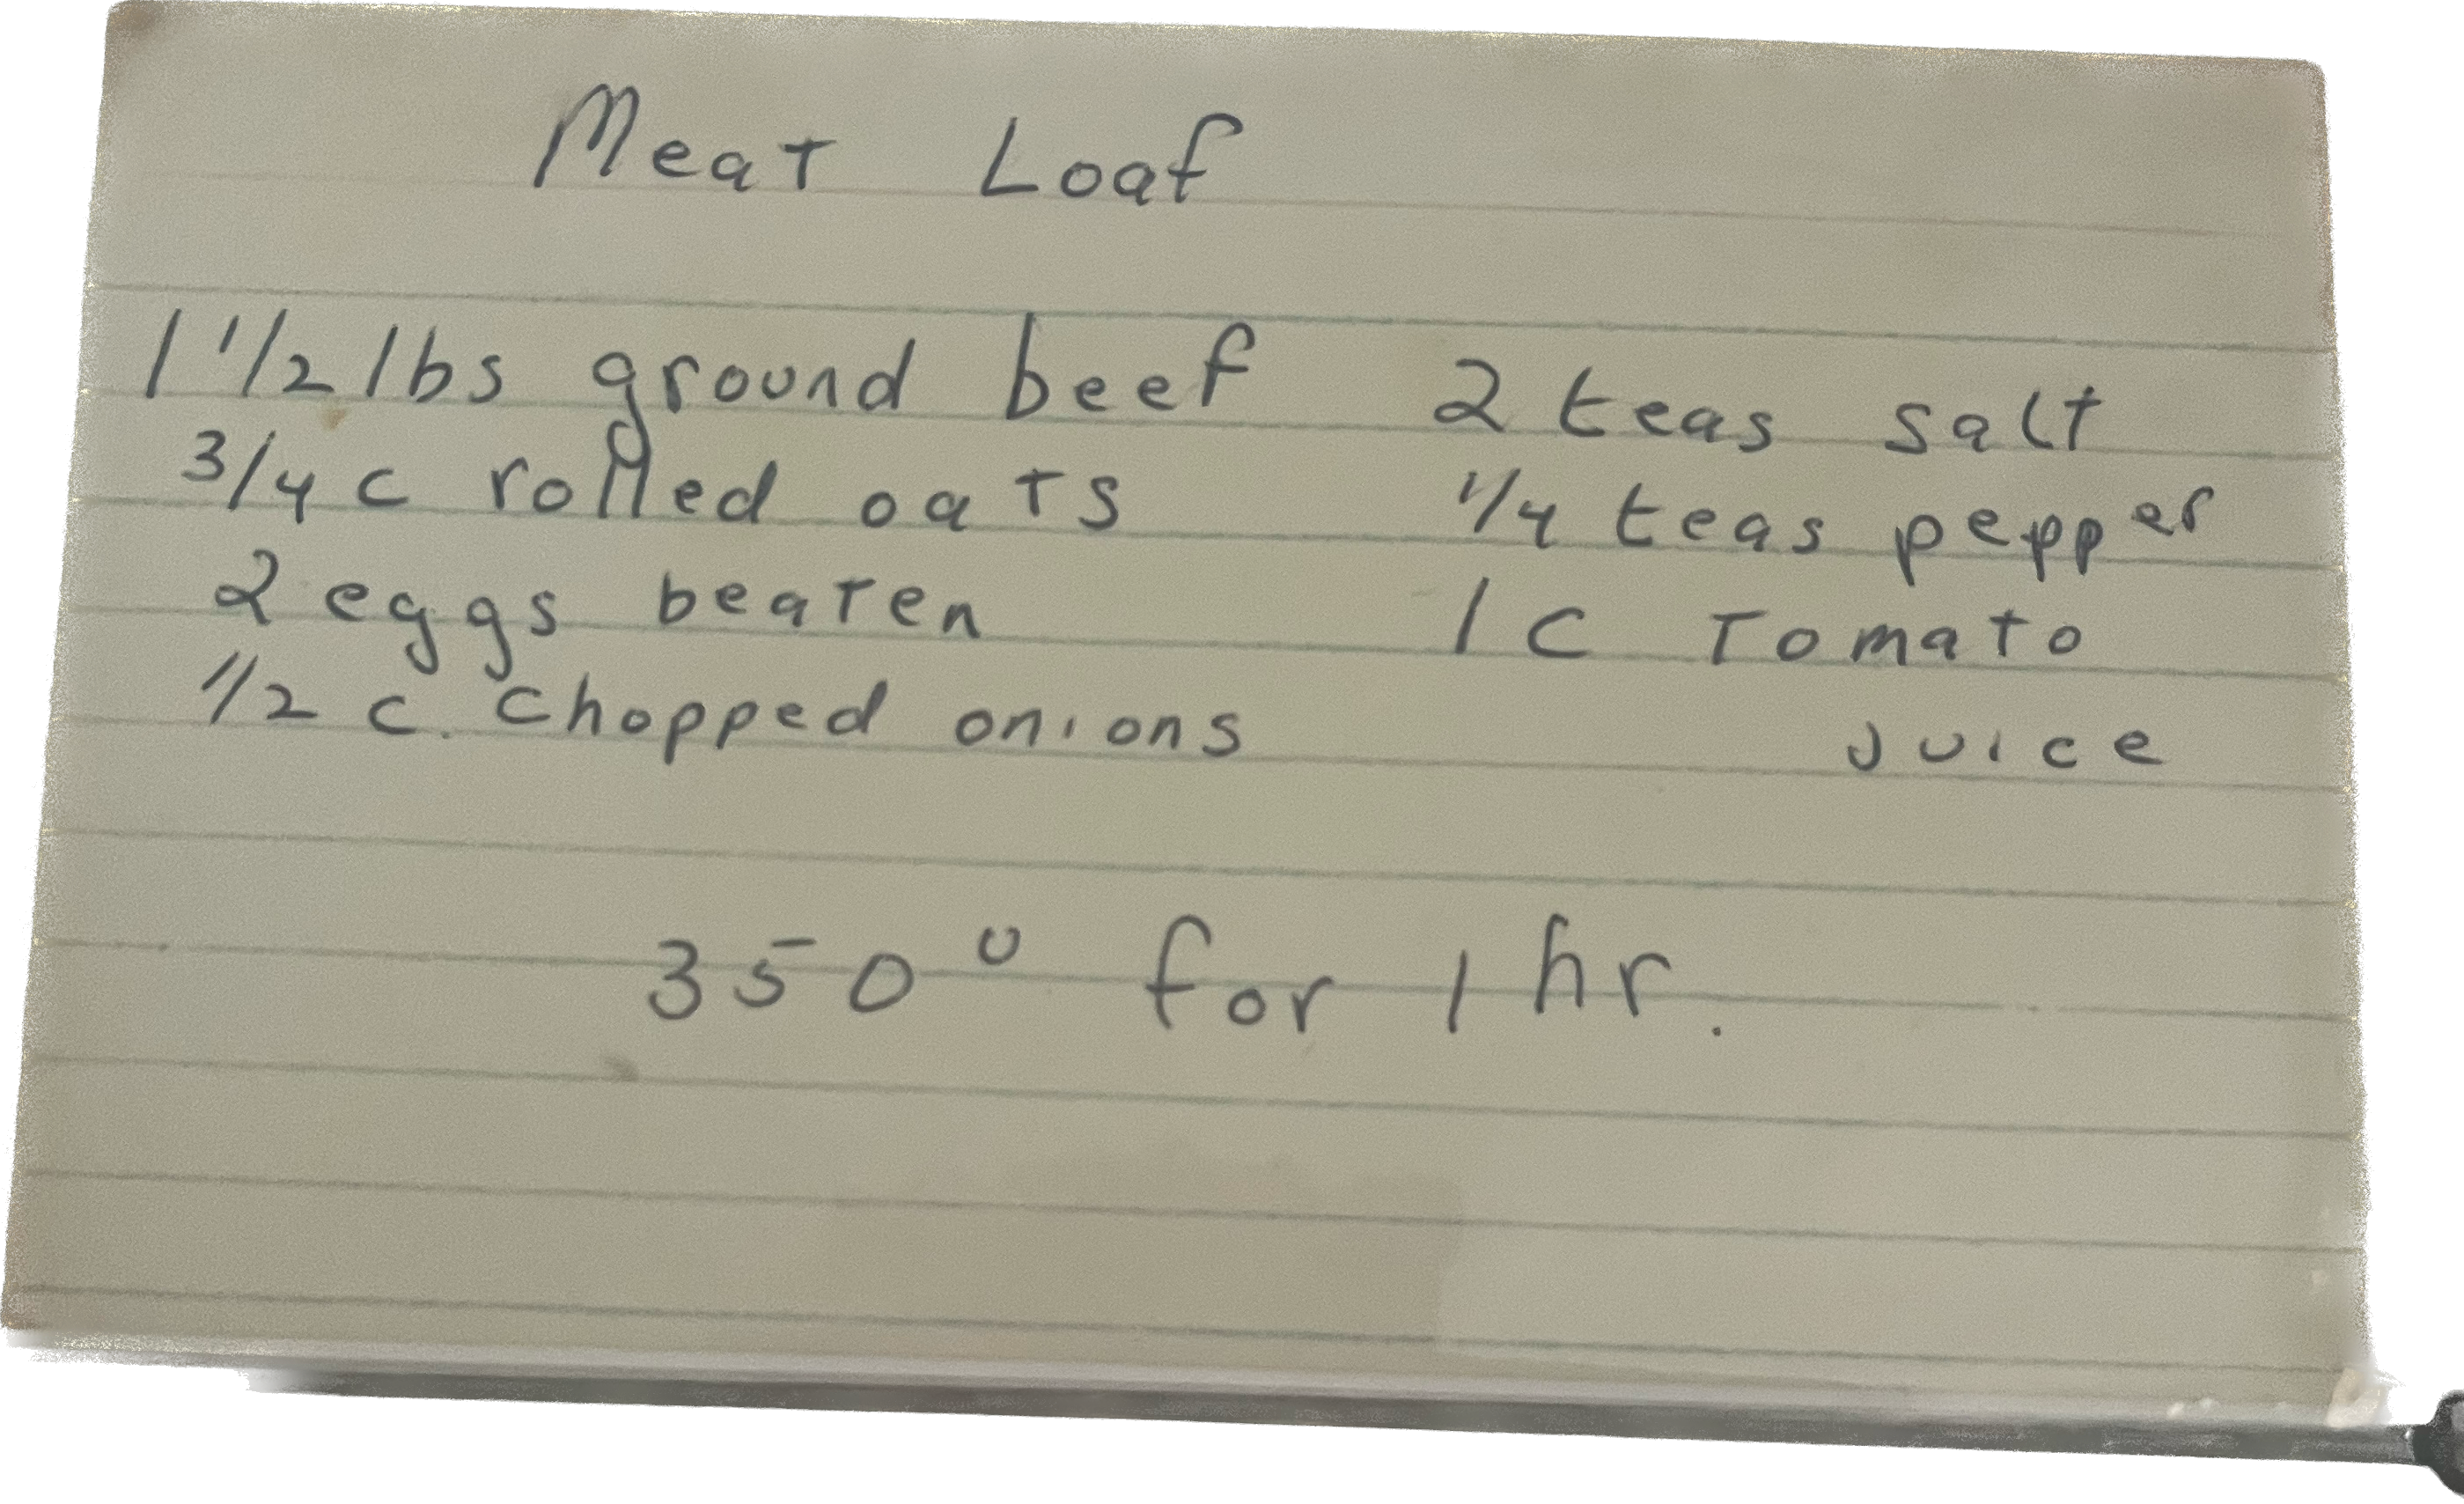 Meat Loaf
1 1/2 lbs ground beef
3/4 c rolled oats
2 eggs beaten
1/2 c. chopped onions
2 teas salt
1/4 teas pepper
1 c Tomato
juice
350° for 1 hr.